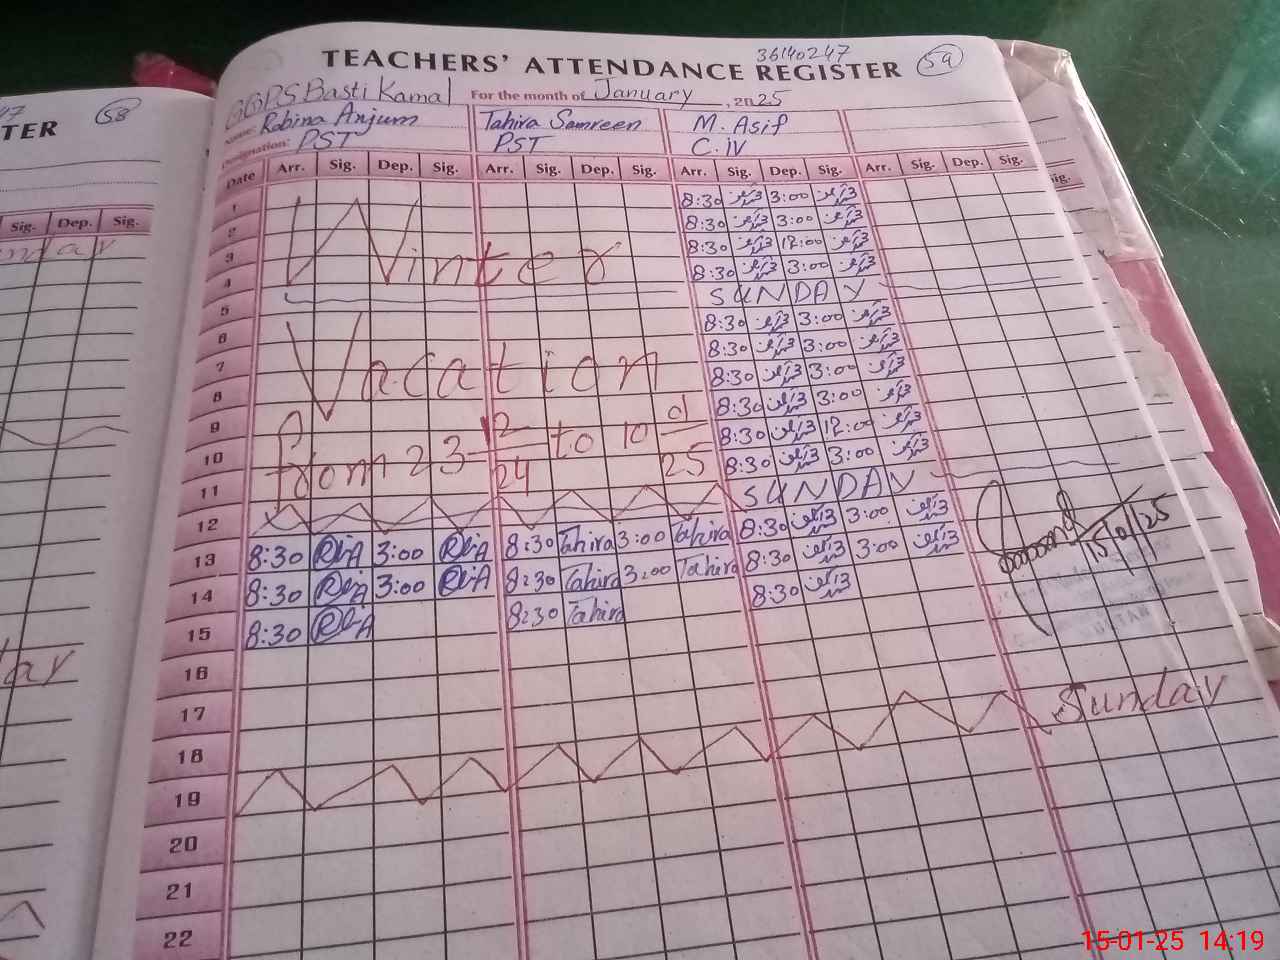 47 58
TER
Sig. Dep. Sig.
36140247 59
TEACHERS' ATTENDANCE REGISTER
GGPS Basti Kamal For the month of January, 2025
Name: Robina Anjum Tahira Samreen M. Asif
Designation: PST PST C.IV
Date Arr. Sig. Dep. Sig. Arr. Sig. Dep. Sig. Arr. Sig. Dep. Sig. Arr. Sig. Dep. Sig.
1 8:30 3:00
2 8:30 3:00
3 Winter 8:30 12:00
4 8:30 3:00
5 SUNDAY
6 8:30 3:00
7 8:30 3:00
8 Vacation 8:30 3:00
9 8:30 3:00
10 from 23-12/24 to 10 01/25 8:30 12:00
11 8:30 3:00
12 SUNDAY
13 8:30 3:00 8:30 Tahira 3:00 Tahira 8:30 3:00
14 8:30 3:00 8:30 Tahira 3:00 Tahira 8:30 3:00
15 8:30 8:30 Tahira 8:30
15/01/25
16
17
18
19 Sunday
20
21
22
15-01-25 14:19